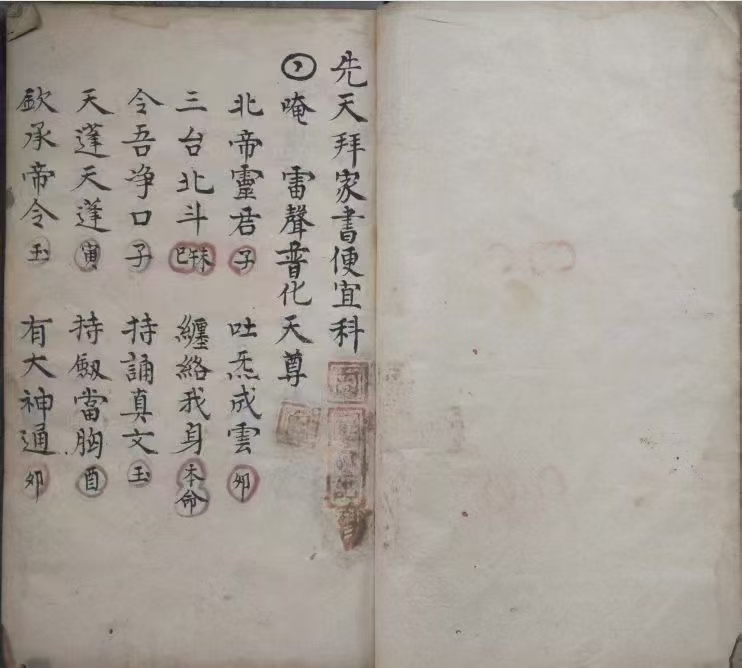 先天拜家書便宜科
唵 雷聲普化天尊
北帝靈君子 吐炁成雲卯
三台北斗巳午未 纏絡我身本命
令吾净口子 持誦真文玉
天蓬天蓬寅 持劔當胸酉
欽承帝令玉 有大神通卯